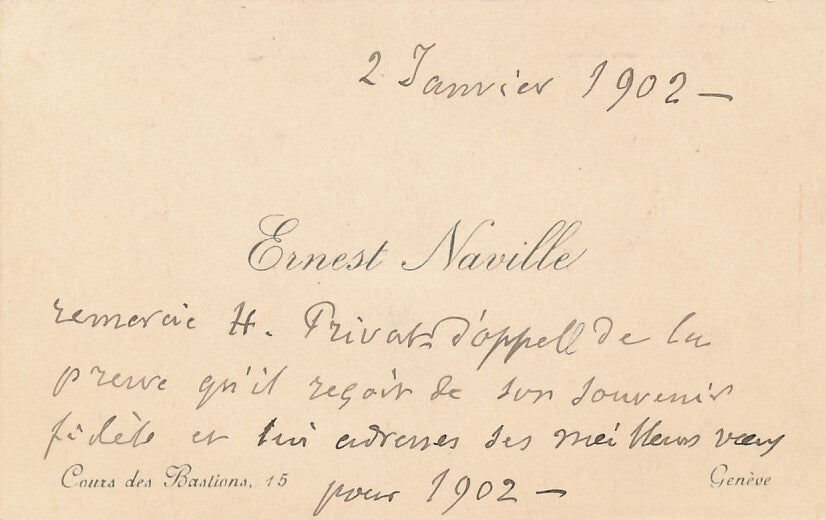 2 Janvier 1902 —
Ernest Naville
remercie H. Privat d'appel de la
preuve qu'il reçoit de son souvenir
fidèle et lui adresses ses meilleurs vœux
Cours des Bastions, 15
pour 1902 —
Genève